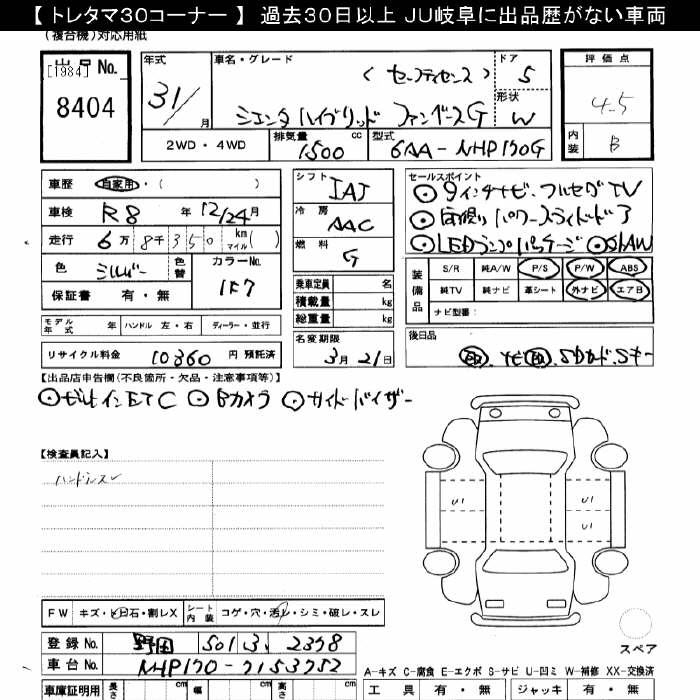 【 トレタマ30コーナー 】 過去30日以上 JU岐阜に出品歴がない車両
(複合機)対応用紙
出品 No.
[1984]
8404
年式
31/
月
車名・グレード
(セーフティセンス)
シエンタ ハイブリッド ファンベースG
ドア
5
形状
W
評価点
4.5
内装
B
2WD・4WD
排気量
1500
cc
型式
6AA-NHP170G
車歴
自家用・( )
車検
R8 年 12/24 月
走行
6万8千350 km マイル( )
色
シルバー
色替
カラーNo.
1F7
保証書 有・無
シフト
IAT
冷房
AAC
燃料
G
乗車定員 名
積載量 kg
総重量 kg
セールスポイント
⊙9インチナビ、フルセグTV
⊙両側パワースライドドア
⊙LEDランプパッケージ ⊙SHAW
装備品
S/R 純A/W P/S P/W ABS
純TV 純ナビ 革シート 外ナビ エアB
ナビ型番:
モデル年式 年 ハンドル 左・右 ディーラー・並行
リサイクル料金 10360 円 預託済
名変期限
3月21日
後日品
【出品店申告欄(不良箇所・欠品・注意事項等)】
⊙ビルトインETC ⊙Bカメラ ⊙サイドバイザー
【検査員記入】
ハンドルスレ
U1
U1
U1
FW キズ・飛石・割レX シート内装 コゲ・穴・汚レ・シミ・破レ・スレ
登録 No. 野田 501 み 2378
車台 No. NHP170-7153752
スペア
A-キズ C-腐食 E-エクボ S-サビ U-凹ミ W-補修 XX-交換済
車庫証明用 長さ cm 幅 cm 高さ cm
工具 有・無 ジャッキ 有・無